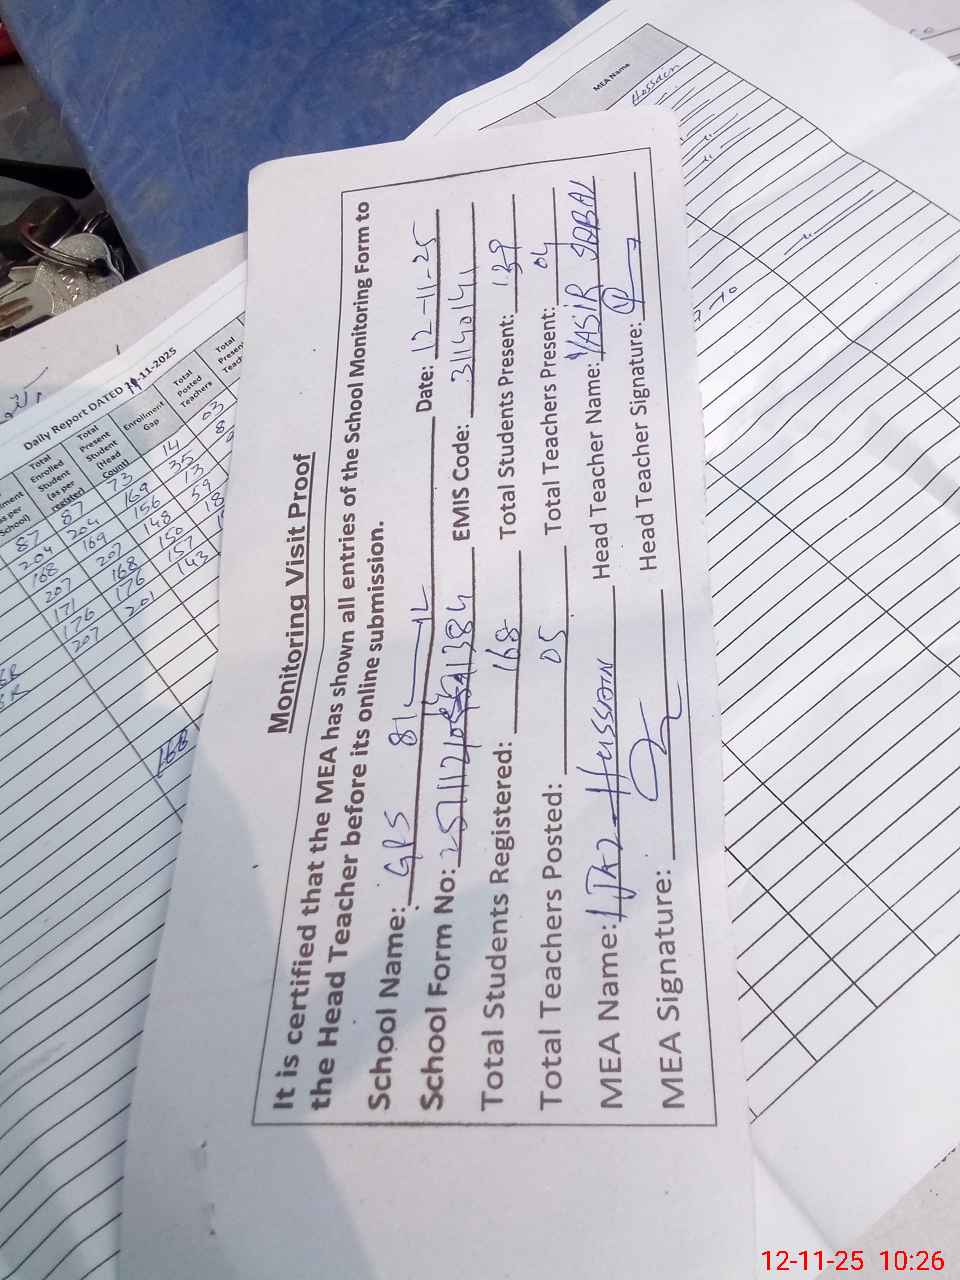 Monitoring Visit Proof
It is certified that the MEA has shown all entries of the School Monitoring Form to
the Head Teacher before its online submission.
School Name: GPS 81 1L Date: 12-11-25
School Form No: EMIS Code:
Total Students Registered: 168 Total Students Present: 139
Total Teachers Posted: 05 Total Teachers Present: 04
MEA Name: IJAZ Hussain Head Teacher Name: YASIR IQBAL
MEA Signature: Head Teacher Signature:
Daily Report DATED 11-2025
Total Enrolled Student (as per register)
Total Present Student (Head Count)
Enrollment Gap
Total Posted Teachers
87 87 73 14 03
204 204 169 35
168 169 156 13
207 207 148 59
171 168 150 18
176 176 157
207 201 143
168
MEA Name
12-11-25 10:26